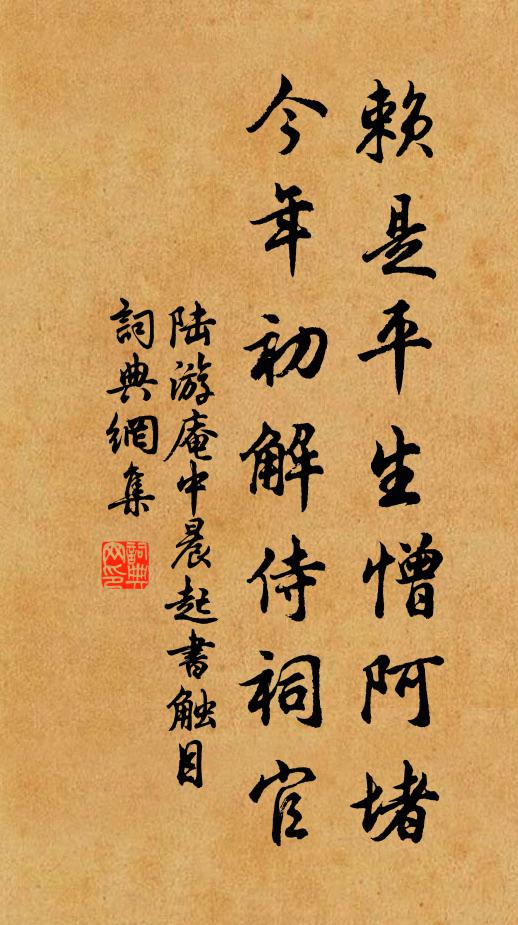 賴是平生憎阿堵
今年初解侍祠官
陸游庵中晨起書觸目
詞典網集
詞典網印